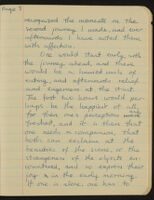 Page 3
recognized the moments on the
second journey I made, and ever
afterwards I have noted them
with affection.
One would start early, with
the journey ahead, and there
would be a hurried with of
eating, and afterwards relief
and eagerness at the start.
The first few hours would per-
haps be the happiest of all,
for then one's perceptions are
freshest, and it is then that
one needs a companion, that
both can exclaim at the
beauties of the scene, or the
strangeness of the objects en-
countered, and so express their
joy in the early morning.
If one is alone, one has to